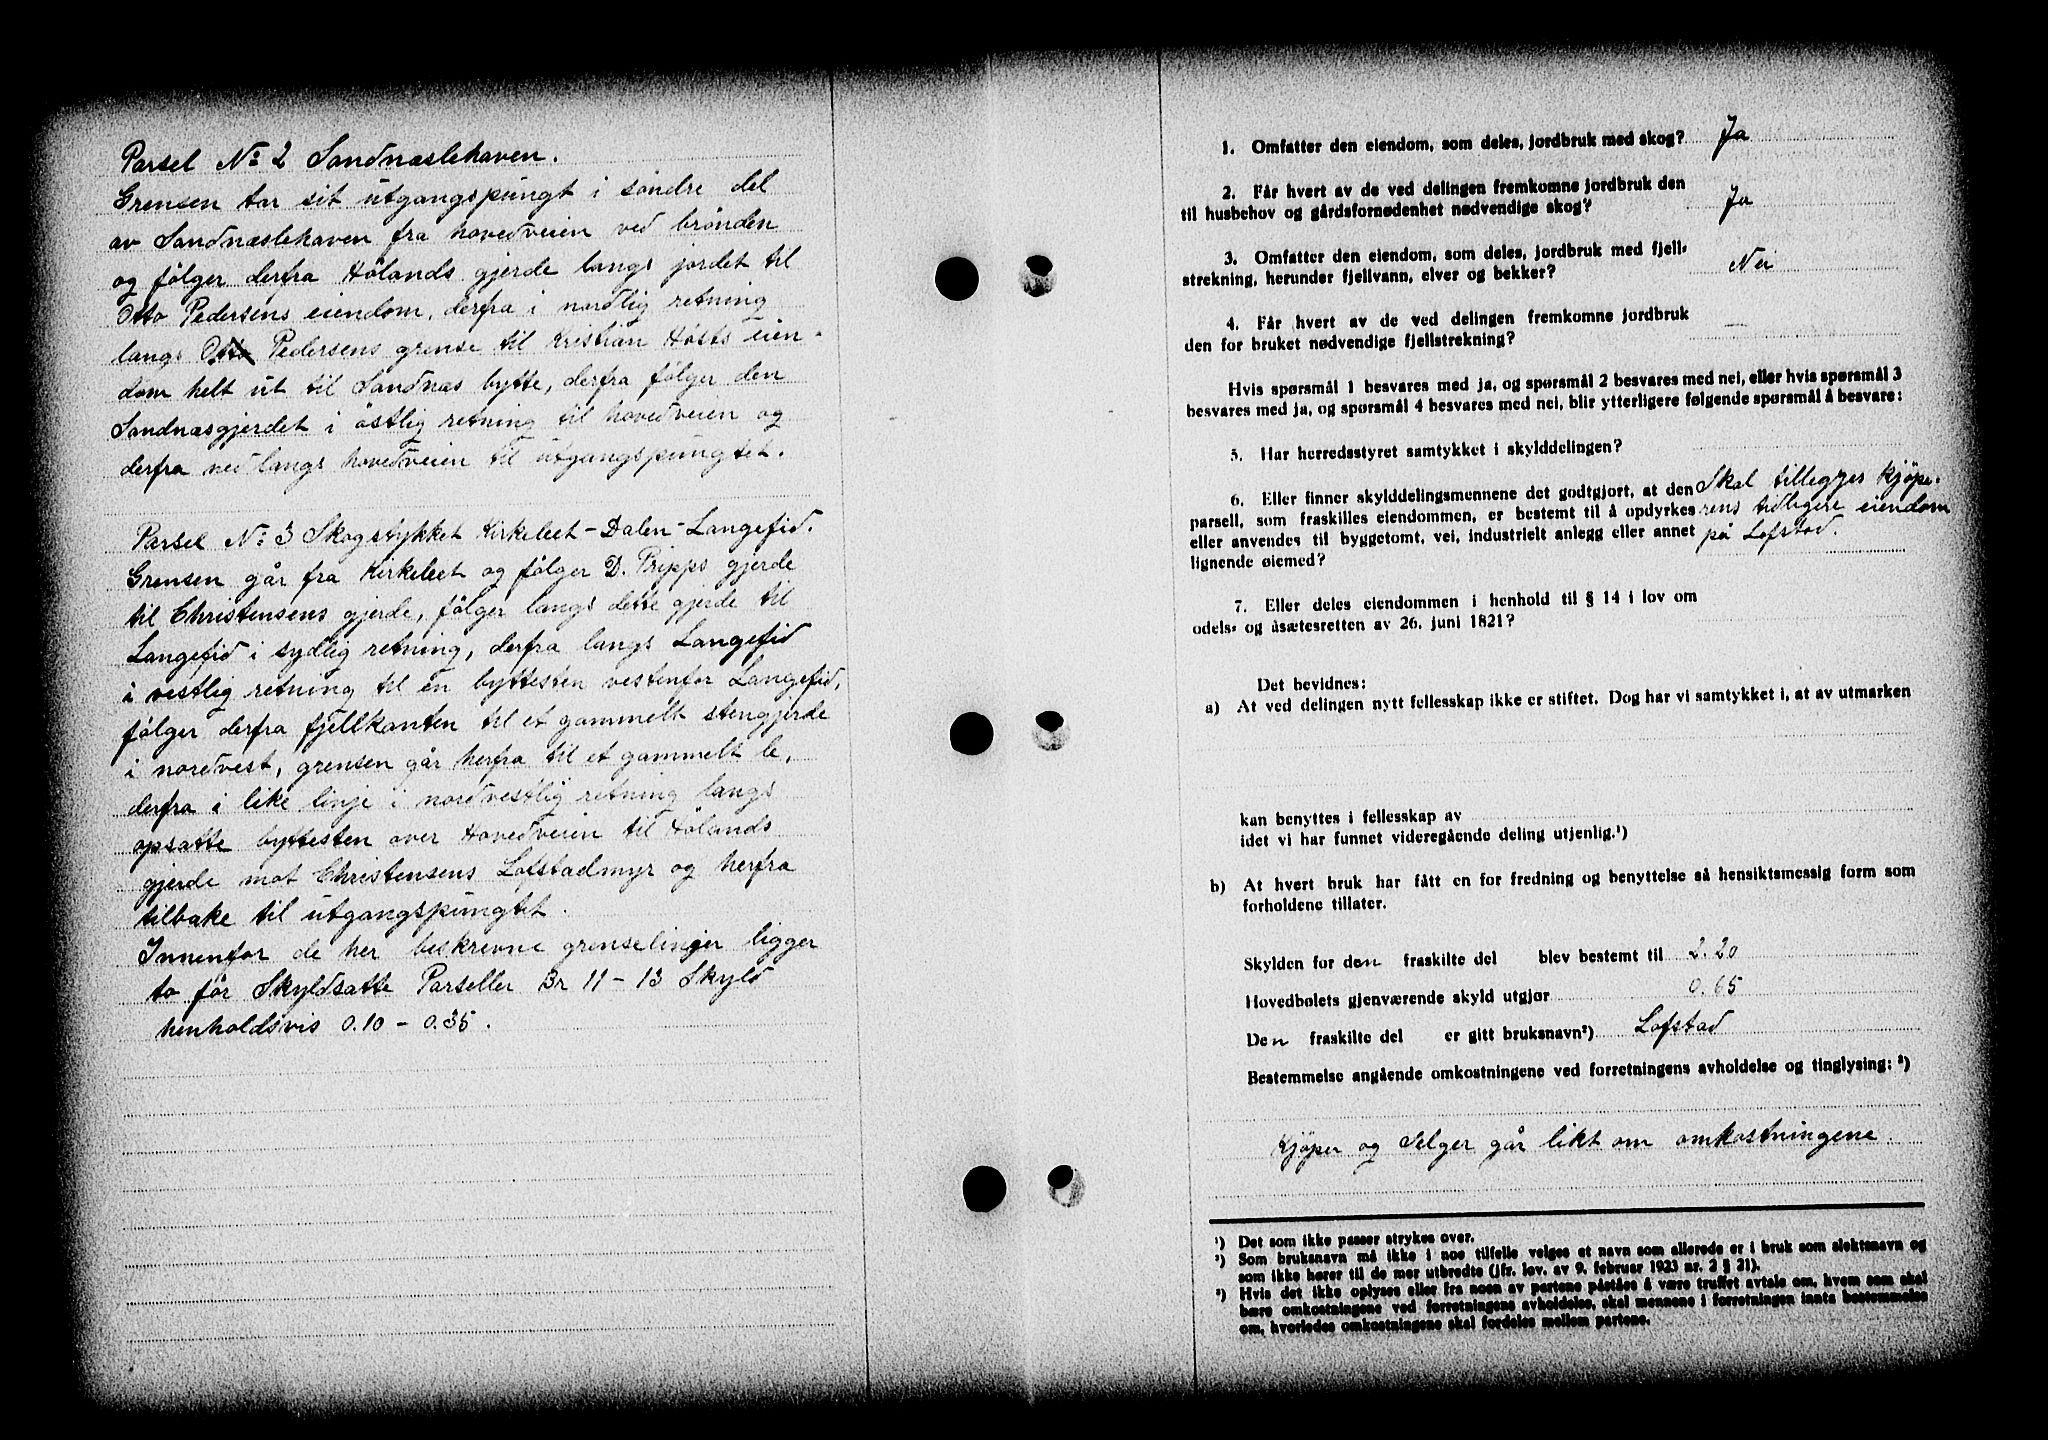 Parsel No 2 Sandnæslehaven.
Grensen tar sit utgangspungt i søndre del
av Sandnæslehaven fra hovedveien ved brønden
og følger derfra Hølands gjerde langs jordet til
Otto Pedersens eiendom, derfra i nordlig retning
langs Otto Pedersens grense til Kristian Høsts eien-
dom helt ut til Sandnæs bytte, derfra følger den
Sandnæsgjerdet i østlig retning til hovedveien og
derfra ned langs hovedveien til utgangspungtet.
Parsel No 3 Skogstykket Kirkeleet - Dalen - Langefid.
Grensen går fra Kirkeleet og følger D. Pripps gjerde
til Christensens gjerde, følger langs dette gjerde til
Langefid i sydlig retning, derfra langs Langefid
i vestlig retning til en byttesten vestenfor Langefid,
følger derfra fjellkanten til et gammelt stengjerde
i nordvest, grensen går herfra til et gammelt le,
derfra i like linje i nordvestlig retning langs
opsatte byttesten over Hovedveien til Hølands
gjerde mot Christensens Lofstadmyr og herfra
tilbake til utgangspungtet.
Innenfor de her beskrevne grenselinjer ligger
to før Skyldsatte Parseller Br 11 - 13 Skyld
henholdsvis 0.10 - 0.35.
1. Omfatter den eiendom, som deles, jordbruk med skog? Ja
2. Får hvert av de ved delingen fremkomne jordbruk den
til husbehov og gårdsfornødenhet nødvendige skog? Ja
3. Omfatter den eiendom, som deles, jordbruk med fjell-
strekning, herunder fjellvann, elver og bekker? Nei
4. Får hvert av de ved delingen fremkomne jordbruk
den for bruket nødvendige fjellstrekning? —
Hvis spørsmål 1 besvares med ja, og spørsmål 2 besvares med nei, eller hvis spørsmål 3
besvares med ja, og spørsmål 4 besvares med nei, blir ytterligere følgende spørsmål å besvare:
5. Har herredsstyret samtykket i skylddelingen?
6. Eller finner skylddelingsmennene det godtgjort, at den Skal tillegges kjøpe-
parsell, som fraskilles eiendommen, er bestemt til å opdyrkes rens tidligere eiendom
eller anvendes til byggetomt, vei, industrielt anlegg eller annet på Lofstad.
lignende øiemed?
7. Eller deles eiendommen i henhold til § 14 i lov om
odels- og åsætesretten av 26. juni 1821?
Det bevidnes:
a) At ved delingen nytt fellesskap ikke er stiftet. Dog har vi samtykket i, at av utmarken
kan benyttes i fellesskap av
idet vi har funnet videregående deling utjenlig.¹)
b) At hvert bruk har fått en for fredning og benyttelse så hensiktsmessig form som
forholdene tillater.
Skylden for den fraskilte del blev bestemt til 2.20
Hovedbølets gjenværende skyld utgjør 0.65
Den fraskilte del er gitt bruksnavn²) Lofstad
Bestemmelse angående omkostningene ved forretningens avholdelse og tinglysing: ³)
Kjøper og Selger går likt om omkostningene.
¹) Det som ikke passer strykes over.
²) Som bruksnavn må ikke i noe tilfelle velges et navn som allerede er i bruk som slektsnavn og
som ikke hører til de mer utbredte (jfr. lov. av 9. februar 1923 nr. 2 § 21).
³) Hvis det ikke oplyses eller fra noen av partene påståes å være truffet avtale om, hvem som skal
bære omkostningene ved forretningens avholdelse, skal mennene i forretningen innta bestemmelse
om, hvorledes omkostningene skal fordeles mellem partene.